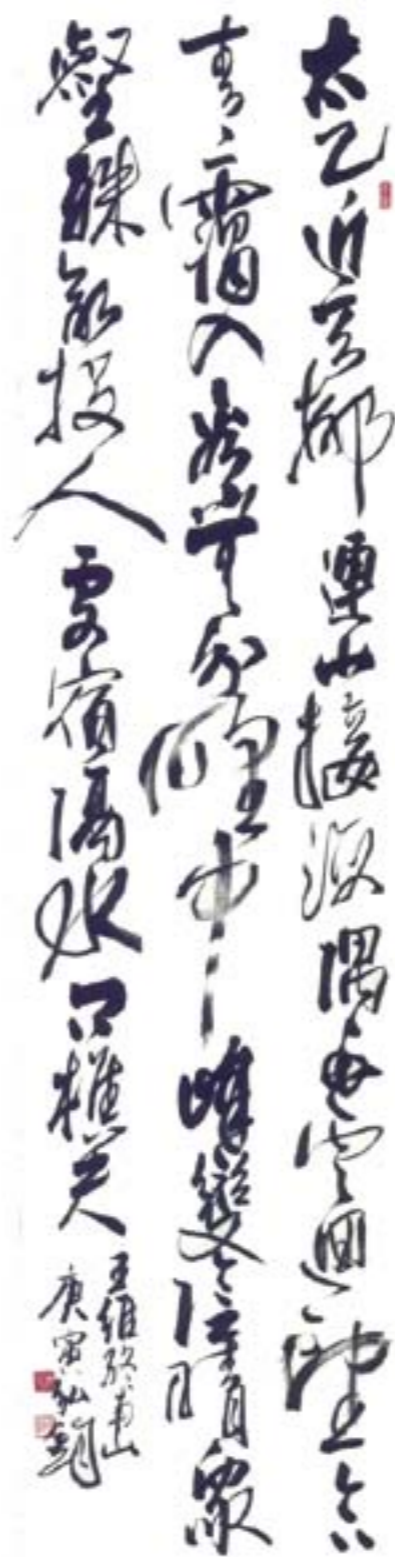 太乙近天都連山接海隅白雲迴望合
青靄入看無分野中峰變陰晴衆
壑殊欲投人處宿隔水問樵夫
王維終南山
庚寅弘